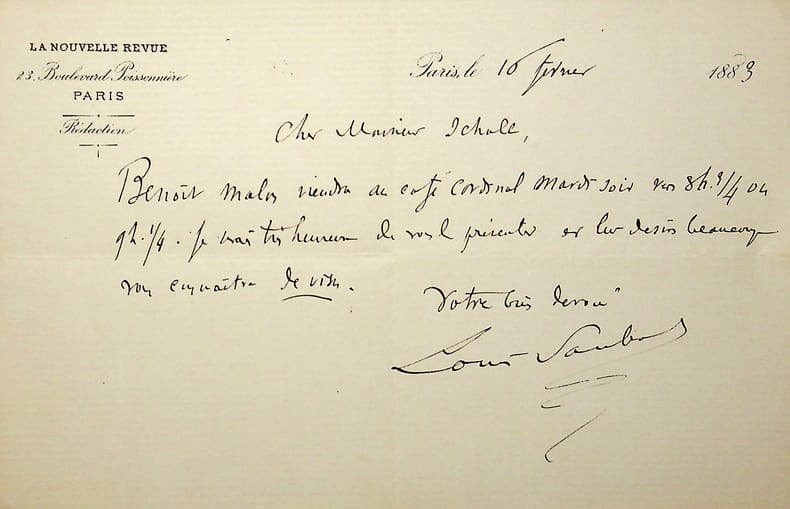 LA NOUVELLE REVUE
23, Boulevard Poissonnière
PARIS
Rédaction
Paris, le 16 février 1883
Cher Monsieur Scholl,
Benoit Malon viendra au café Cardinal Mardi soir vers 8h. 3/4 ou
9h. 1/4. Je serais très heureux de vous le présenter et lui désire beaucoup
vous connaître de visu.
Votre très dévoué
Louis